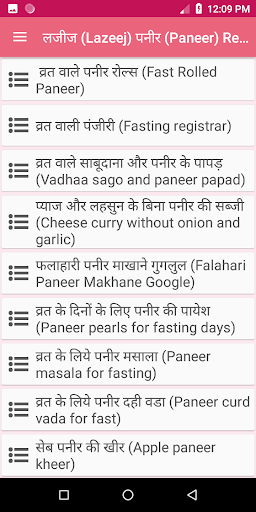 12:09 PM
लजीज (Lazeej) पनीर (Paneer) Re...
व्रत वाले पनीर रोल्स (Fast Rolled
Paneer)
व्रत वाली पंजीरी (Fasting registrar)
व्रत वाले साबूदाना और पनीर के पापड़
(Vadhaa sago and paneer papad)
प्याज और लहसुन के बिना पनीर की सब्जी
(Cheese curry without onion and
garlic)
फलाहारी पनीर माखाने गुगलुल (Falahari
Paneer Makhane Google)
व्रत के दिनों के लिए पनीर की पायेश
(Paneer pearls for fasting days)
व्रत के लिये पनीर मसाला (Paneer
masala for fasting)
व्रत के लिये पनीर दही वडा (Paneer curd
vada for fast)
सेब पनीर की खीर (Apple paneer
kheer)